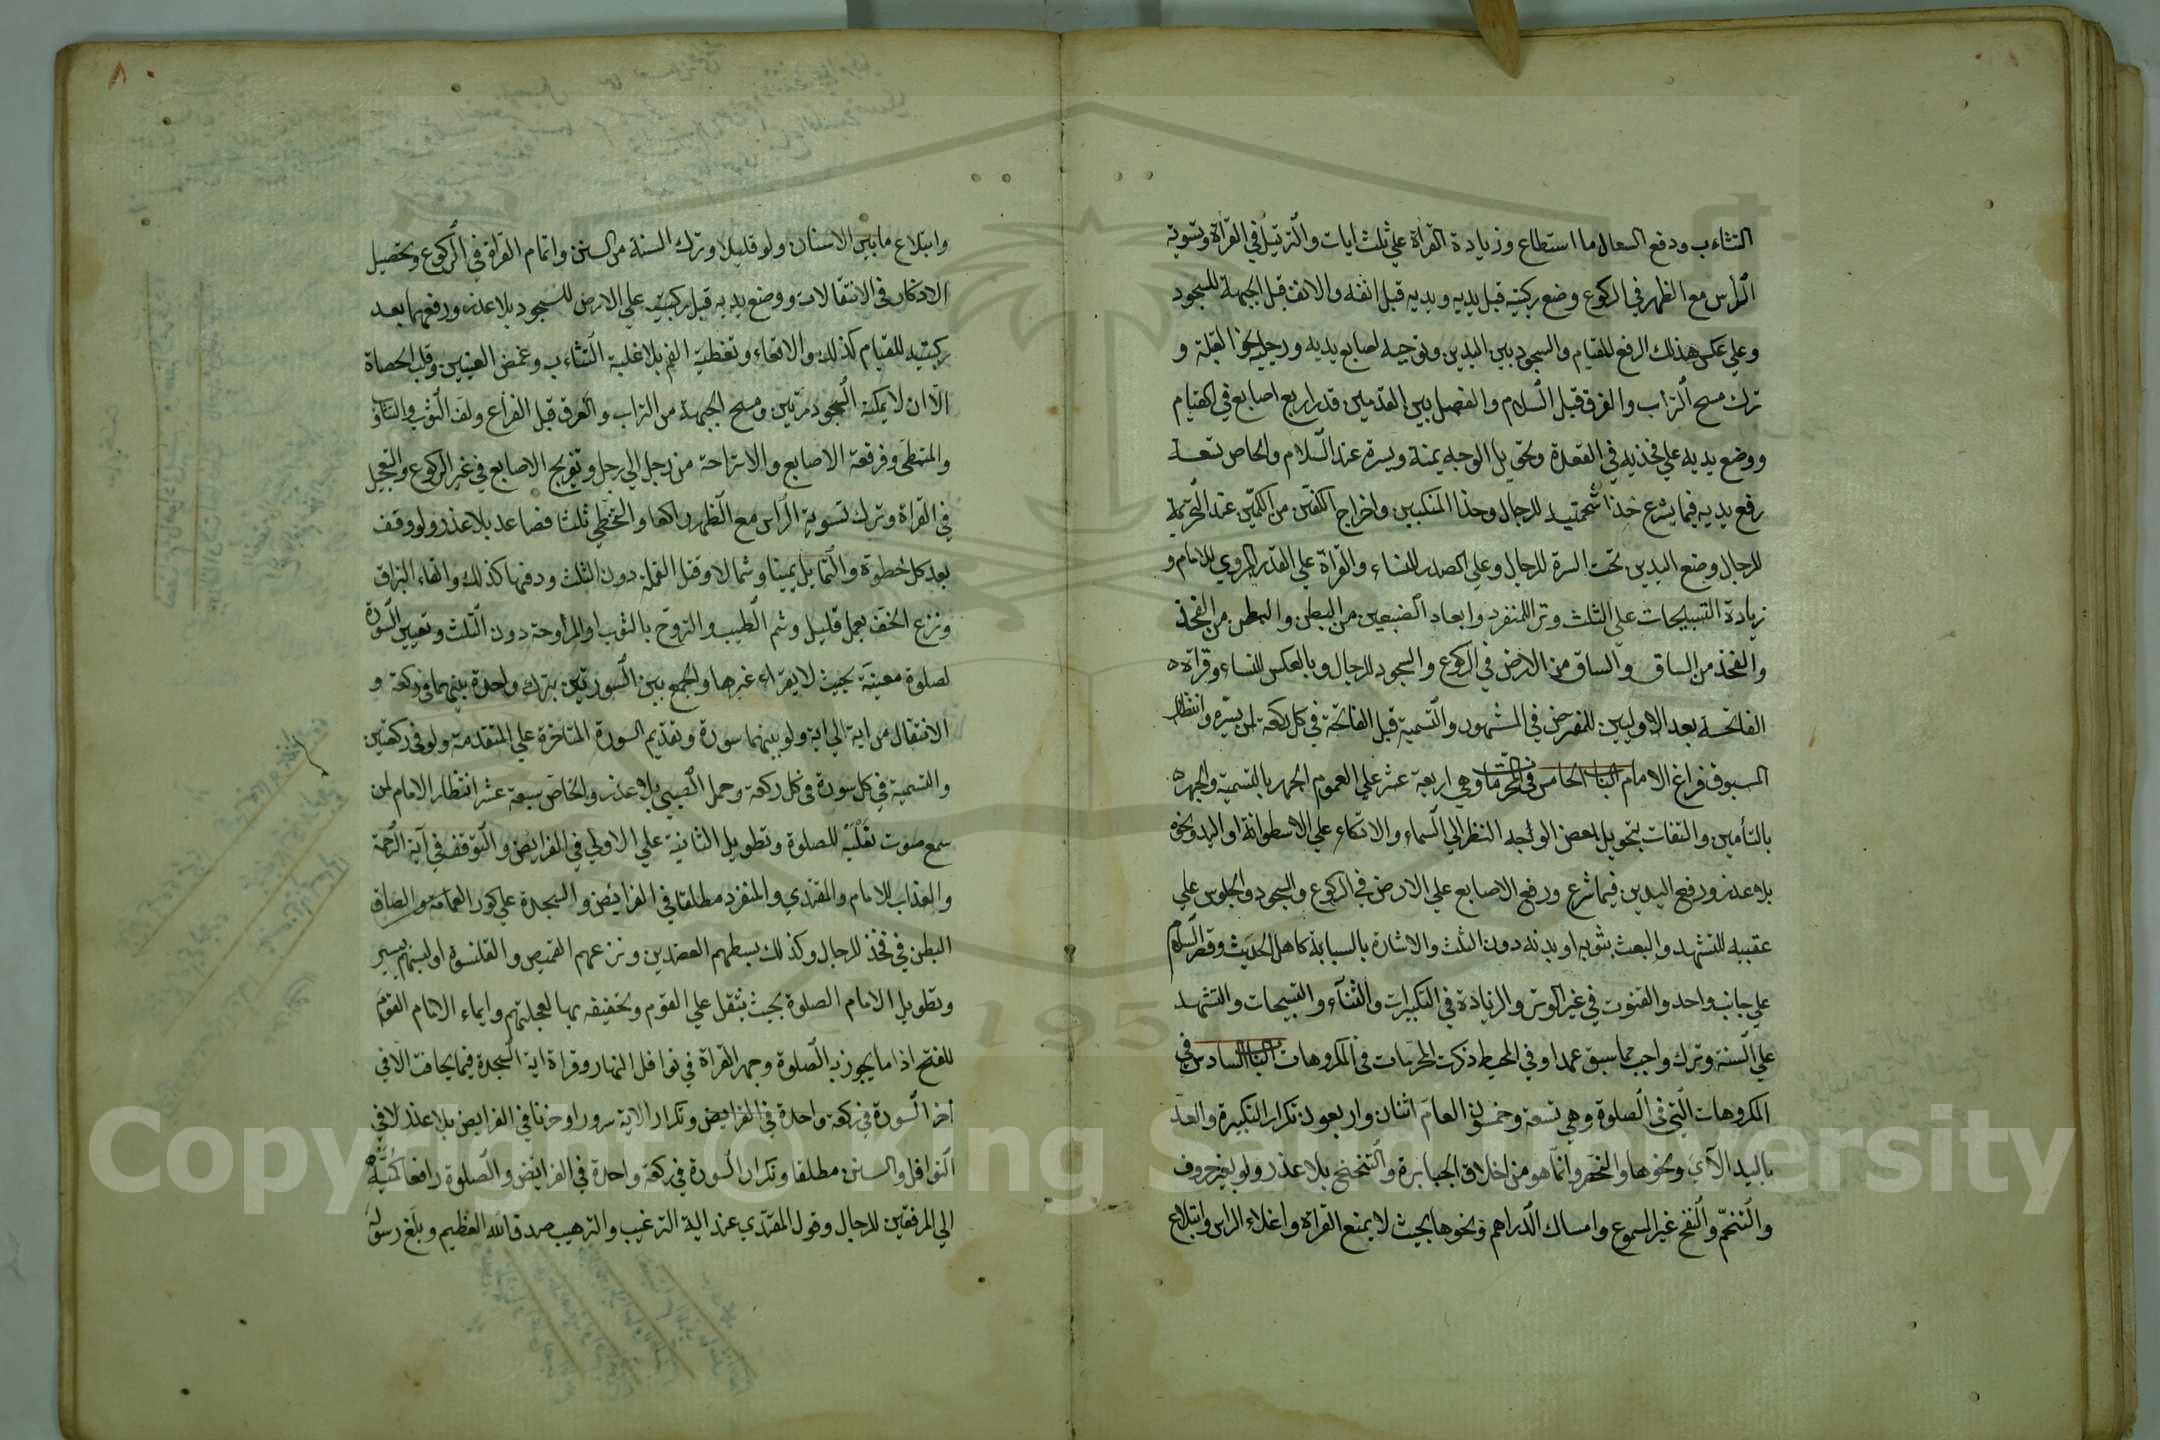 التثاءب ودفع السعال ما استطاع وزيادة القراة علي ثلث ايات والترتيل في القراة وتسوية
الراس مع الظهر في الركوع ووضع ركبتيه قبل يديه ويديه قبل انفه والانف قبل الجبهة للسجود
وعلي عكس هذلك الرفع للقيام والسجود بين اليدين وتوجيه اصابع يديه ورجليه نحو القبلة و
ترك مسح التراب والعرق قبل السلام والفصل بين القدمين قدر اربع اصابع في القيام
ووضع يديه علي فخذيه في القعدة وتحويل الوجه يمنة ويسرة عند السلام والخاص تسعة
رفع يديه فيما يشرع حذا شحمتيه للرجال وحذا المنكبين واخراج الكفين من الكمين عند التحريمة
للرجال ووضع اليدين تحت السرة للرجال وعلي الصدر للنساء والقراة علي القدر المروي للامام و
زيادة التسبيحات علي الثلث وترا للمنفرد وابعاد الضبعين من البطن والبطن من الفخذ
والفخذ من الساق والساق من الارض في الركوع والسجود للرجال وبالعكس للنساء وقراة
الفاتحة بعد الاوليين للمفرض في المشهور والتسمية قبل الفاتحة في كل ركعة لمن يسره وانتظار
المسبوق فراغ الامام الباب الخامس في المحرمات وهي اربعة عشر علي العموم الجهر بالتسمية والجهر
بالتأمين والتفات بتحويل بعض الوجه النظر الي السماء والاتكاء علي الاسطوانة او اليد ونحوه
بلا عذر ورفع اليدين فيما شرع ورفع الاصابع علي الارض في الركوع والسجود والجلوس علي
عقبيه للتشهد والبعث بثوبه او بدنه دون الثلث والاشارة بالسبابة كاهل الحديث وقصر السلام
علي جانب واحد والقنوت في غير الوتر والزيادة في التكبيرات والثناء والتسبيحات والتشهد
علي السنة وترك واجب مما سبق عمدا وفي المحيط ذكرت المحرمات في المكروهات الباب السادس في
المكروهات التي في الصلوة وهي تسعة وخمسون العام اثنان واربعون تكرار التكبيرة والعد
باليد الآي ونحوها والتخصر وانما هو من اخلاق الجبابرة والتنحنح بلا عذر ولو بغير حروف
والتنخم والنفخ غير المسموع وامساك الدراهم ونحوها بحيث لا يمنع القراة واعلاء الراس وابتلاع
وابتلاع ما بين الاسنان ولو قليلا وترك السنة من السنن واتمام القراة في الركوع وتحصيل
الاذكار في الانتقالات ووضع يديه قبل ركبتيه علي الارض للسجود بلا عذر ورفعهما بعد
ركبتيه للقيام كذلك والاقعاء وتغطية الفم بلا غلبة التثاءب وغمض العينين وقلب الحصاة
الا ان لا يمكنه السجود مرتين ومسح الجبهة من التراب والعرق قبل الفراع ولف الثوب والتثاؤ
والتمطي وفرقعة الاصابع والاستراحة من رجل الي رجل وتفريج الاصابع في غير الركوع والتعجيل
في القراة وترك تسوية الراس مع الظهر راكعا والتخطي ثلثا فصاعد بلا عذر ولو وقف
بعد كل خطوة والتمايل يمينا وشمالا وقتل القملة دون الثلث ودفنها كذلك والقاء البزاق
ونزع الخف بعمل قليل وشم الطيب والتروح بالثوب او المروحة دون الثلث وتعيين السورة
لصلوة معينة بحيث لا يقراء غيرها والجمع بين السورتين بترك واحدة بينهما في ركعة و
الانتقال من اية الي اية ولو بينهما سورة وتقديم السورة المتاخرة علي المتقدمة ولو في ركعتين
والتسمية في كل سورة في كل ركعة وحمل الصبي بلا عذر والخاص سبعة عشر انتظار الامام لمن
سمع صوت نعليه للصلوة وتطويل الثانية علي الاولي في الفرايض والتوقف في آية الرحمة
والعذاب للامام والمقتدي والمنفرد مطلقا في الفرايض والسجدة علي كور العمامة والصاق
البطن في فخذ للرجال وكذلك بسطهم العضدين ونزعهم القميص والقلنسوة او لبسهم بيسير
وتطويل الامام الصلوة بحيث يثقل علي القوم وتخفيفه بها لعجلتهم وايماء الامام القوم
للفتح اذا ما يجوز به الصلوة وجهر القراة في نوافل النهار وقراة اية السجدة فيما يخافت الا في
اخر السورة في ركعة واحدة في الفرايض وتكرار الاية سرورا وحزنا في الفرايض بلا عذر لا في
النوافل والسنن مطلقا وتكرار السورة في ركعة واحدة في الفرايض والصلوة رافعا كميه
الي المرفقين للرجال وقول المقتدي عند اية الترغيب والترهيب صدق الله العظيم وبلغ رسوله
Copyright © King Saud University
1957